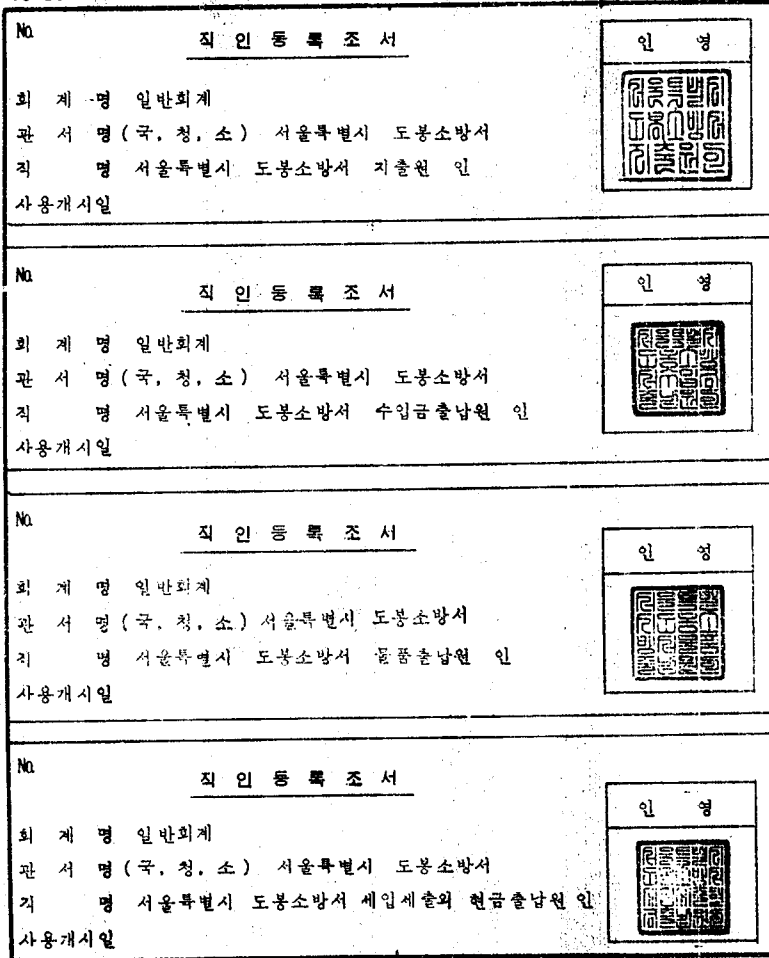 No.
직 인 등 록 조 서
인 영
회 계 명 일반회계
관 서 명 (국, 청, 소) 서울특별시 도봉소방서
직 명 서울특별시 도봉소방서 지출원 인
사용개시일
No.
직 인 등 록 조 서
인 영
회 계 명 일반회계
관 서 명 (국, 청, 소) 서울특별시 도봉소방서
직 명 서울특별시 도봉소방서 수입금출납원 인
사용개시일
No.
직 인 등 록 조 서
인 영
회 계 명 일반회계
관 서 명 (국, 청, 소) 서울특별시 도봉소방서
직 명 서울특별시 도봉소방서 물품출납원 인
사용개시일
No.
직 인 등 록 조 서
인 영
회 계 명 일반회계
관 서 명 (국, 청, 소) 서울특별시 도봉소방서
직 명 서울특별시 도봉소방서 세입세출외 현금출납원 인
사용개시일